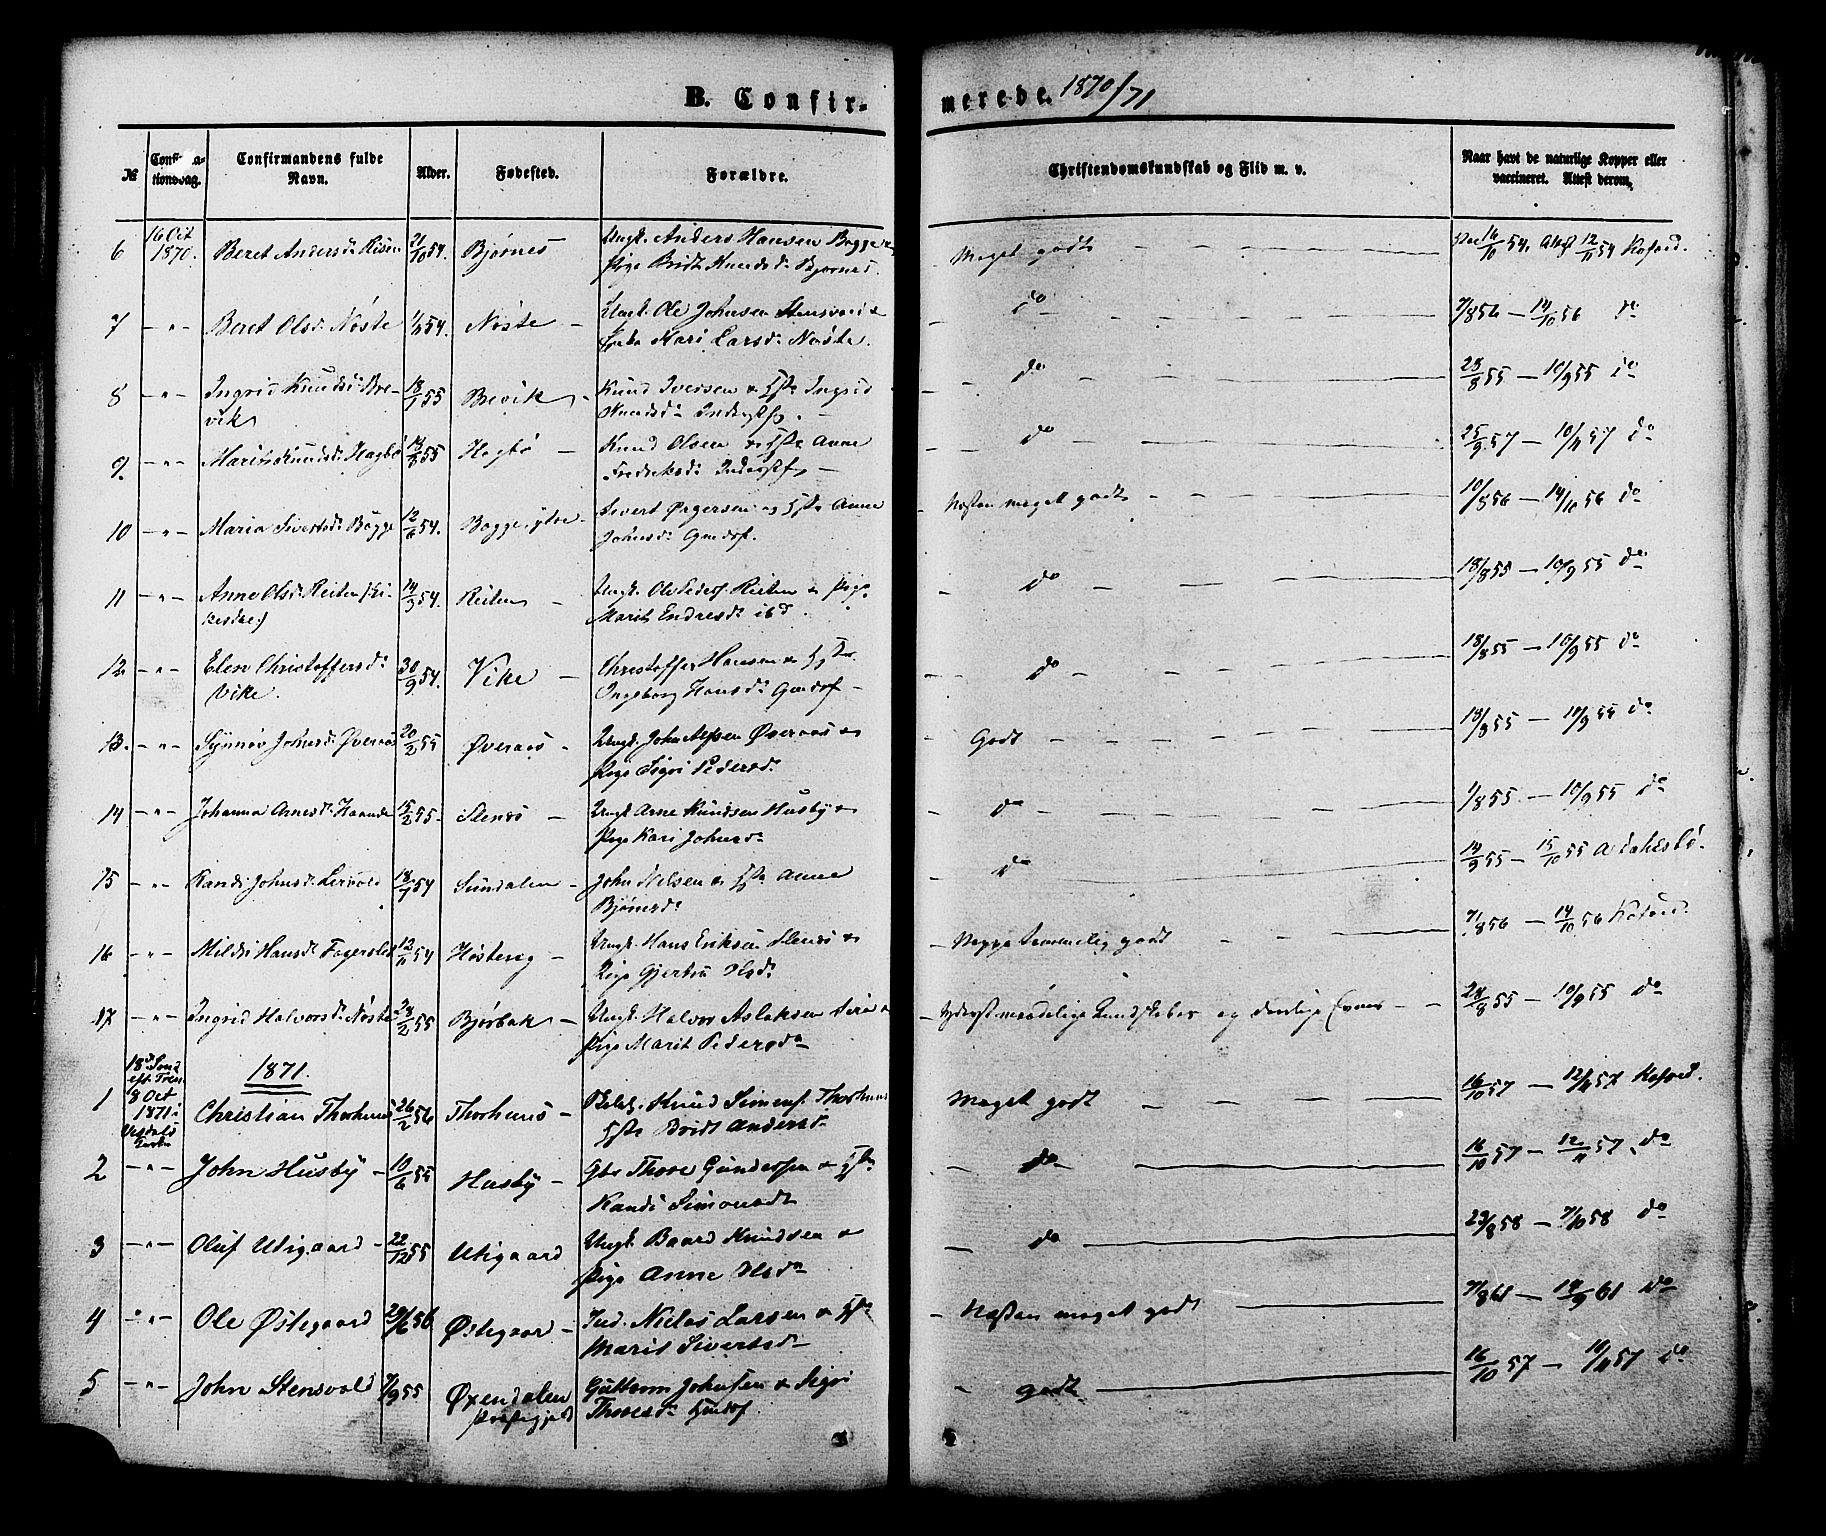 B. Confirmerede. 1870/71
№ Confirmationsdag. Confirmandens fulde Navn. Alder. Fødested. Forældre. Christendomskundskab og Flid m. v. Naar havt de naturlige Kopper eller vaccineret. Attest derom.
6 16 Oct 1870. Beret Andersd: 21/10 54. Bjørnes Ungk. Anders Hansen Bogge &
Pige Bridt Knudsd: Bjørnes. Meget godt 16/10 54. Attest 12/11 54 Kofoed.
7 — " — Beret Olsd: Nøste 54. Nøste — Ungk. Ole Johnsen Stensvold &
Kari Larsd: Nøste. do 7/8 56 — 14/10 56 do
8 — " — Ingrid Knudsd: Brevik 18/1 55 Brevik Knud Iversen & Hst Ingrid
Knudsd: do 28/8 55 — 10/9 55 do
9. — " — Marit Knudsd: Hagbø 55 Hagbø — Knud Olsen & Hst Anne
Fredriksd: do 25/9 57 — 10/11 57 do
10 — " — Maria Sivertsd: Bogge 12/6 54. Bogge ytre — Sivert Ørgersen og Hst Anne
Johnsd: Gmdsf. Næsten meget godt 10/8 56 — 14/10 56 do
11 — " — Anne Olsd: Reiten 14/3 54. Reiten — Ungk. Ole Peders. Reiten & Pige
Marit Endresd: ibd. do 18/8 55 — 10/9 55 do
12. — " — Elen Christoffersd: Vike. 30/9 54. Vike — Christoffer Hansen & Hst
Ingeborg Hansd: Gmdsf — do 18/8 55 — 10/9 55 do
13. — " — Synnøv Johnsd: Øveraas 20/2 55 Øveraas — Ungk. John Øveraas &
Pige Sigri Pedersd: Godt 18/8 55 — 10/9 55 do
14 — " — Johanna Arnesd: 15/2 55. Stenøs — Ungk. Arne Knudsen Husby &
Pige Kari Johnsd: do 1/8 55. — 10/9 55 do
15 — " — Randi Johnsd: Lervold 18/7 54 Sundalen — John Nilsen & Hst Anne
Bjønersd: do 14/9 55 — 15/10 55
16 — " — Mildri Hansd: Fagerslet 12/11 54 — Ungk. Hans Eriksen Stenøs &
Pige Gjertru Olsd: Neppe temmelig godt 7/8 56 — 14/10 56 Kofoed.
17 — " — Ingrid Halvorsd: Nøste 55 Bjørbak — Ungk. Halvor Aslaksen &
Pige Marit Pedersd: Yderst maadelige Kundskaber og daarlige Evner 28/8 55 — 10/9 55 do
1871.
1 18d Sønd. eft. Tren. 8 Oct 1871 i Vesdals Kirke Christian Thorhuus 26/2 56 Thorhuus — Knud Simens. Thorhuus
Hst Bridt Andersd: Meget godt 16/10 57 — 12/11 57 Kofoed.
2 — " — John Husby — 10/6 55 Husby — Gbr Thore Gundersen & Hst
Randi Simonsdt do 16/10 57 — 12/11 57. do
3 — " — Oluf Utigaard — 22/12 55 Utigaard Ungk. Baard Knudsen &
Pige Anne Olsdn do 23/8 58 — 7/10 58 do
4 " — " — Ole Østigaard 29/6 56 Østigaar — Ind. Niels Larsen & Hst
Marit Sivertsd: Næsten meget godt 7/8 61 — 14/9 61 do
5 — " — John Stensvold 7/9 55 Øxendalen Præstegjeld Guttorm Johnsen & Sigri
Thoresd: Gmdsf. godt 16/10 57 — 10/11 57 do